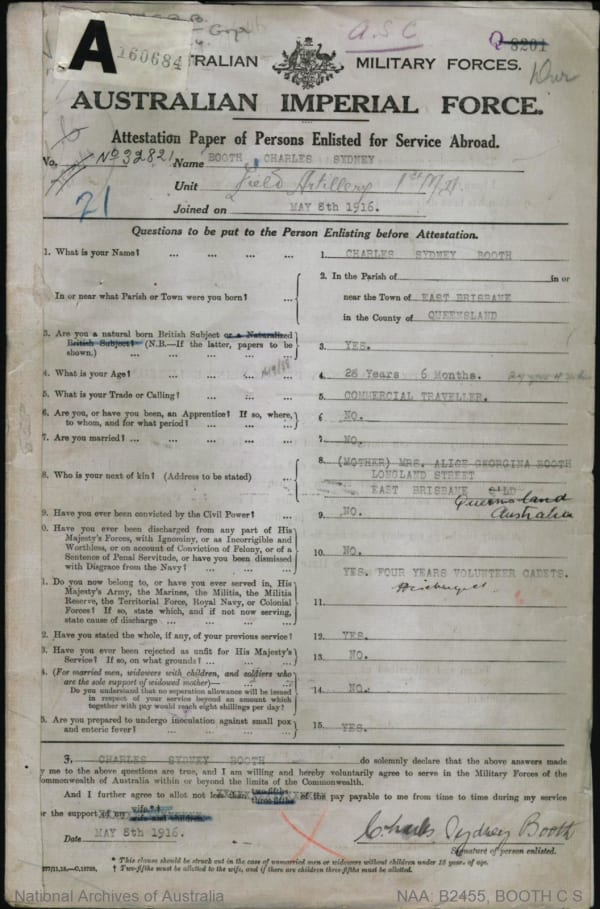 A
160684
A.S.C
8201
AUSTRALIAN MILITARY FORCES.
AUSTRALIAN IMPERIAL FORCE.
Attestation Paper of Persons Enlisted for Service Abroad.
No. No 32821 Name BOOTH CHARLES SYDNEY
Unit Field Artillery
21
Joined on MAY 8th 1916.
Questions to be put to the Person Enlisting before Attestation.
1. What is your Name? ... ... ... ... 1. CHARLES SYDNEY BOOTH
2. In the Parish of in or
In or near what Parish or Town were you born? ... near the Town of EAST BRISBANE
in the County of QUEENSLAND
3. Are you a natural born British Subject or a Naturalized
British Subject? (N.B.—If the latter, papers to be
shown.) ... ... ... ... ... 3. YES.
4. What is your Age? ... ... 4. 28 Years 6 Months.
5. What is your Trade or Calling? ... ... ... 5. COMMERCIAL TRAVELLER.
6. Are you, or have you been, an Apprentice? If so, where,
to whom, and for what period? ... ... ... 6 NO.
7. Are you married? ... ... ... ... ... 7. NO.
8. Who is your next of kin? (Address to be stated) ... 8 (MOTHER) MRS. ALICE GEORGINA BOOTH
LONGLAND STREET
EAST BRISBANE Q'LD
Queensland
Australia
9. Have you ever been convicted by the Civil Power? ... 9. NO.
0. Have you ever been discharged from any part of His
Majesty's Forces, with Ignominy, or as Incorrigible and
Worthless, or on account of Conviction of Felony, or of a
Sentence of Penal Servitude, or have you been dismissed
with Disgrace from the Navy? ... ... ... 10. NO.
1. Do you now belong to, or have you ever served in, His
Majesty's Army, the Marines, the Militia, the Militia
Reserve, the Territorial Force, Royal Navy, or Colonial
Forces? If so, state which, and if not now serving,
state cause of discharge ... ... ... 11. YES. FOUR YEARS VOLUNTEER CADETS.
Discharged
2. Have you stated the whole, if any, of your previous service? 12. YES.
3. Have you ever been rejected as unfit for His Majesty's
Service? If so, on what grounds? ... ... 13. NO.
4. (For married men, widowers with children, and soldiers who
are the sole support of widowed mother)—
Do you understand that no separation allowance will be issued
in respect of your service beyond an amount which
together with pay would reach eight shillings per day? 14 NO.
5. Are you prepared to undergo inoculation against small pox
and enteric fever? ... ... ... ... 15 YES.
I, CHARLES SYDNEY BOOTH do solemnly declare that the above answers made
y me to the above questions are true, and I am willing and hereby voluntarily agree to serve in the Military Forces of the
ommonwealth of Australia within or beyond the limits of the Commonwealth.
And I further agree to allot not less than two-fifths three-fifths of the pay payable to me from time to time during my service
or the support of my wife wife and children
Date MAY 8th 1916.
Charles Sydney Booth
Signature of person enlisted.
* This clause should be struck out in the case of unmarried men or widowers without children under 18 years of age.
† Two-fifths must be allotted to the wife, and if there are children three-fifths must be allotted.
National Archives of Australia NAA: B2455, BOOTH C S